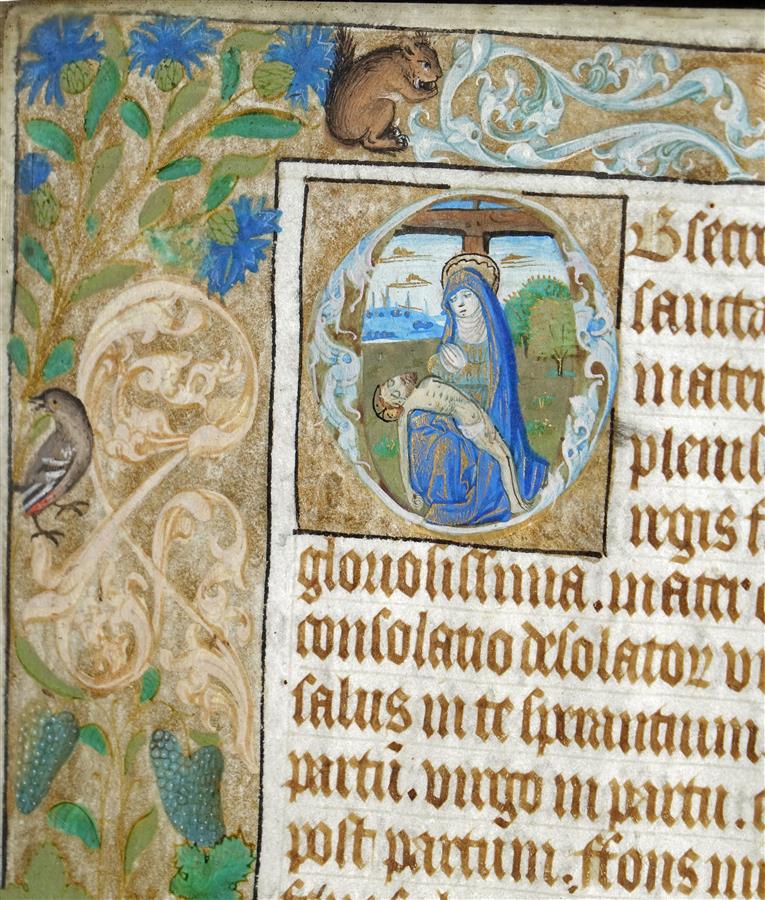 Bsecr
sancta
mater
plenis
regis f
gloriosissima. mater o
consolatio desolatoꝝ vi
salus in te sperantium.
partū. virgo in partu. e
post partum. ffons mi